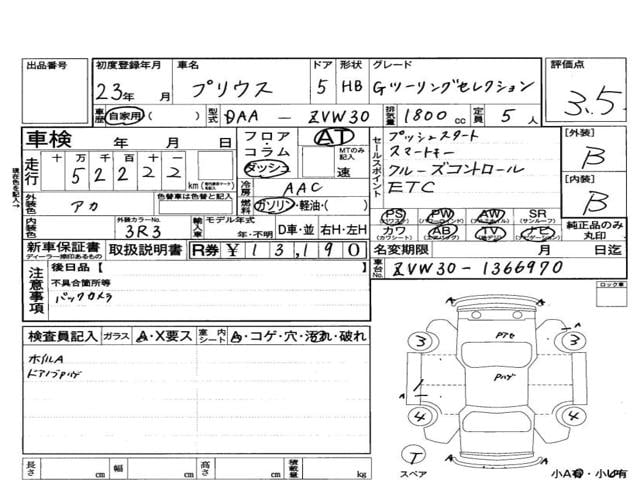 出品番号
初度登録年月 車名 ドア 形状 グレード 評価点
23年 月 プリウス 5 HB Gツーリングセレクション 3.5
車歴 自家用( ) 型式 DAA - ZVW30 排気量 1800cc 定員 5人
車検 年 月 日
フロア・コラム・ダッシュ AT MTのみ記入 速
セールスポイント
プッシュスタート
スマートキー
クルーズコントロール
ETC
[外装] B
[内装] B
走行 十万千百十一
52222 km
冷房 AAC
燃料 ガソリン・軽油・( )
外装色 アカ 色替車は色替と記入
内装色 外装カラーNo. 3R3 輸入車 モデル年式 年・不明 D車・並 右H・左H
PS PW AW SR (サンルーフ)
カワ AB TV ナビ
純正品のみ丸印
新車保証書 取扱説明書 R券 ¥13,190
ディーラー捺印あるもの
名変期限 月 日迄
車台No. ZVW30-1366970
現在色を記入→
注意事項
後日品【
不具合箇所等
バックカメラ
ロック車
検査員記入 ガラス A・X要ス 室内シート A・コゲ・穴・汚れ・破れ
ホイルA
A A
3 3
Pアセ
A A
4 4
T
スペア
長さ cm 幅 cm 高さ cm 積載量 kg
小A有・小U有